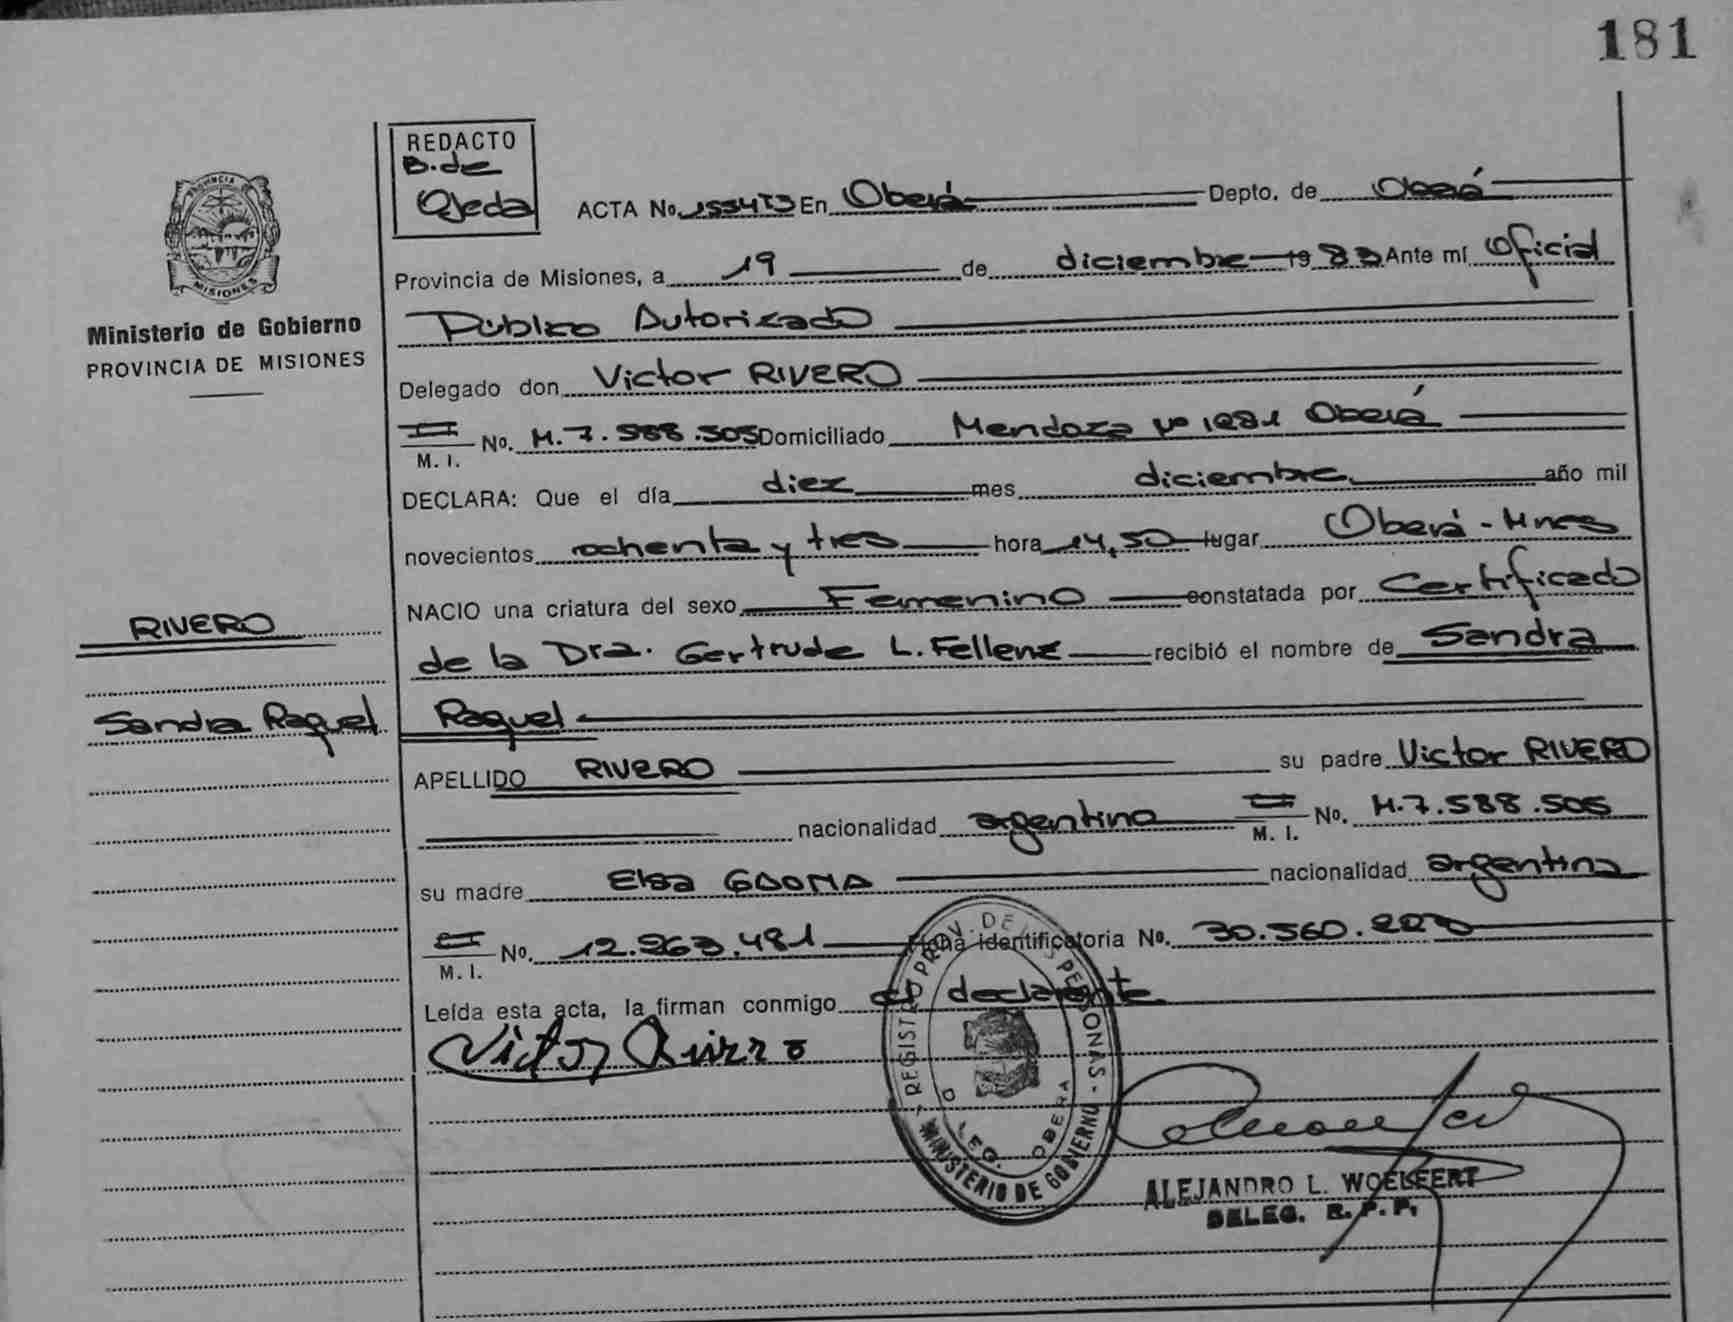 181
REDACTO
B. de
Ojeda
ACTA No. En Oberá Depto. de Oberá
Provincia de Misiones, a 19 de diciembre 19 83 Ante mí Oficial
Público Autorizado
Delegado don Victor RIVERO
M. I. No. M. 7.588.505 Domiciliado Mendoza Nº Oberá
DECLARA: Que el día diez mes diciembre año mil
novecientos ochenta y tres hora 14,50 lugar Oberá - Mnes
NACIO una criatura del sexo Femenino constatada por Certificado
de la Dra. Gertrude L. Fellenz recibió el nombre de Sandra
Raquel
APELLIDO RIVERO su padre Victor RIVERO
nacionalidad argentino M. I. No. M. 7.588.505
su madre Elsa nacionalidad argentina
M. I. No. 12.263.481 Ficha identificatoria No. 30.560.220
Leída esta acta, la firman conmigo el declarante
Victor Rivero
PROVINCIA DE
MISIONES
Ministerio de Gobierno
PROVINCIA DE MISIONES
RIVERO
Sandra Raquel
REGISTRO PROV. DE PERSONAS
DELEG. OBERA
MINISTERIO DE GOBIERNO
ALEJANDRO L. WOELFERT
DELEG. R. P. P.